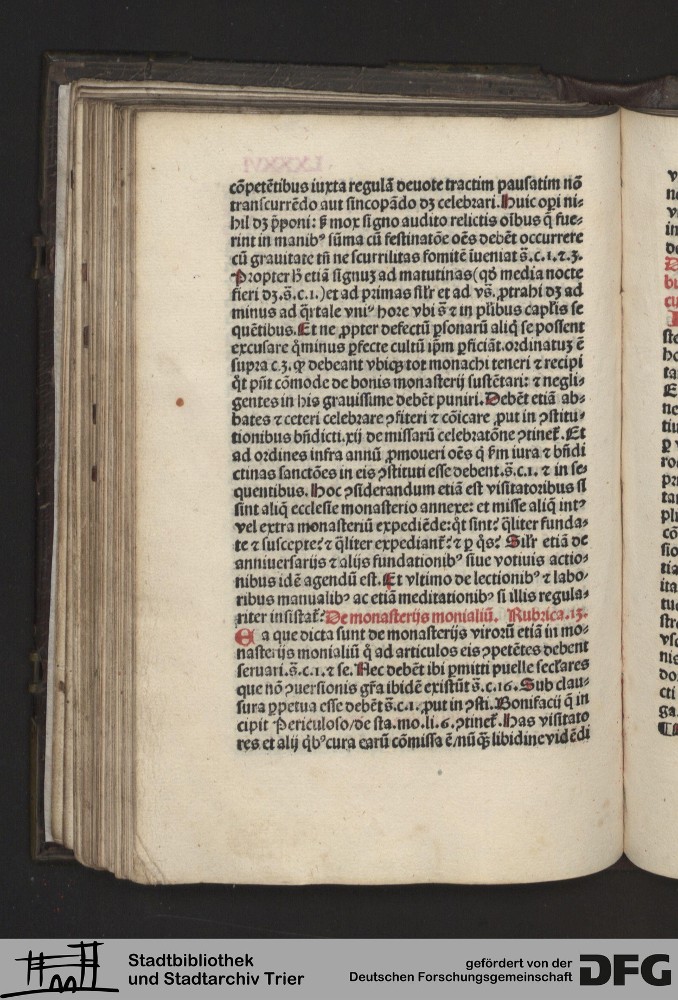 cōpetētibus iuxta regulā deuote tractim pausatim nō
transcurrēdo aut sincopādo dꝫ celebrari. Huic oꝑi ni-
hil dꝫ p̄poni: s̄ mox signo audito relictis oībus q̄ fue-
rint in manibꝰ sūma cū festinatōe oēs debēt occurrere
cū grauitate tn̄ ne scurrilitas fomitē īueniat s̄.c.1.⁊.3.
Propter h̄ etiā signuꝫ ad matutinas (qđ media nocte
fieri dꝫ.s̄.c.1.) et ad primas sil̄r et ad vs̄. ꝓtrahi dꝫ ad
minus ad q̄rtale vniꝰ hore vbi s̄ ⁊ in pl̄ibus cap̄lis se
quētibus. Et ne ꝓpter defectū ꝑsonarū aliq̄ se possent
excusare q̄minus ꝑfecte cultū ip̄m ꝑficiāt. ordinatuꝫ ē
supra c.3. ꝙ debeant vbiqꝫ tot monachi teneri ⁊ recipi
q̄t pn̄t cōmode de bonis monasterij sustētari: ⁊ negli-
gentes in his grauissime debēt puniri. Debēt etiā ab-
bates ⁊ ceteri celebrare ꝯfiteri ⁊ cōicare ꝓut in ꝯstitu-
tionibus bn̄dicti.xij de missarū celebratōne ꝯtinet̄. Et
ad ordines infra annū ꝓmoueri oēs q̄ s̄m iura ⁊ bn̄di
ctinas sanctōes in eis ꝯstituti esse debent.s̄.c.1. ⁊ in se-
quentibus. Hoc ꝯsiderandum etiā est visitatoribus si
sint aliq̄ ecclesie monasterio annexe: et misse aliq̄ intꝰ
vel extra monasteriū expediēde: q̄t sint? q̄liter funda-
te ⁊ suscepte? ⁊ q̄liter expediant̄? ⁊ ꝑ q̄s? Sil̄r etiā de
anniuersarijs ⁊ alijs fundationibꝰ siue votiuis actio-
nibus idē agendū est. Et vltimo de lectionibꝰ ⁊ labo-
ribus manualibꝰ ac etiā meditationibꝰ si illis regula-
riter insistat̄? De monasterijs monialiū. Rubrica.13.
Ea que dicta sunt de monasterijs virorū etiā in mo-
nasterijs monialiū q̄ ad articulos eis ꝯpetētes debent
seruari.s̄.c.1.⁊ se. Nec debēt ibi ꝑmitti puelle secl̄ares
que nō ꝯuersionis gr̄a ibidē existūt s̄.c.16. Sub clau-
sura ꝑpetua esse debēt s̄.c.1. ꝓut in ꝯsti. Bonifacij q̄ in
cipit Periculoso/de sta.mo.li.6.ꝯtinet̄. Has visitato
res et alij q̄bꝰ cura earū cōmissa ē/nūqꝫ libidine vidēdi
Stadtbibliothek
und Stadtarchiv Trier
gefördert von der
Deutschen Forschungsgemeinschaft
DFG